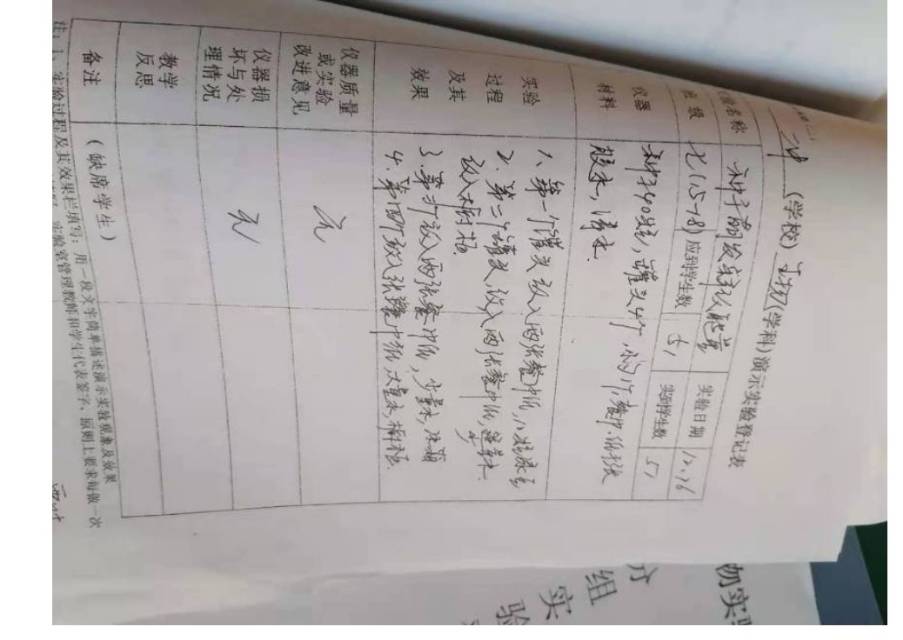 二中（学校）生物（学科）演示实验登记表
种子萌发实验
实验日期 12.16
班级 七（15-18） 应到学生数 51 实到学生数 51
仪器
材料
种子40粒，罐头4个，小勺1个，餐巾纸
胶水，清水。
实验
过程
及其
效果
1、第一个罐头放入两张餐巾纸，
2、第二个罐头，放入两张餐巾纸，
放入橱柜
3、第三个放入两张餐巾纸，少量水，冰箱
4、第四个放入两张餐巾纸，大量水，橱柜。
仪器质量
或实验
改进意见
无
仪器损
坏与处
理情况
无
教学
反思
备注
（缺席学生）
注：1、实验过程及其效果栏填写：用一段文字简单描述演示实验现象及效果
实验室管理教师和学生代表签字，原则上要求每做一次
物实
分
组
实
验